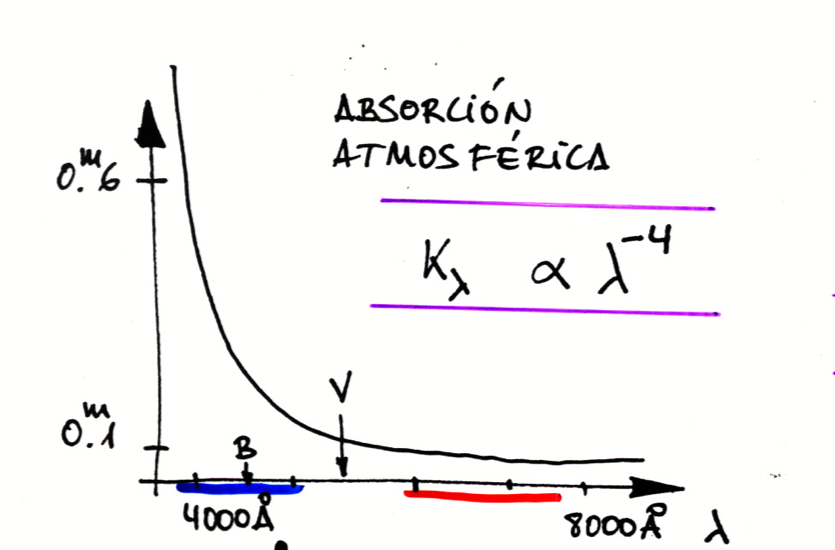 ABSORCIÓN
ATMOSFÉRICA
0.ᵐ6
K_λ ∝ λ⁻⁴
V
0.ᵐ1
B
4000Å
8000Å λ